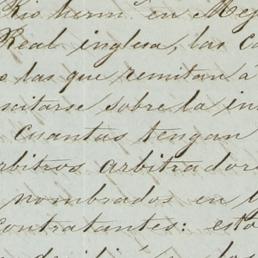 Rio herm.ⁿ en Mej
Real inglesa, las Co
o las que remitan á
scitarse sobre la in
cuantas tengan
rbitros arbitrador
nombrados en l
Contratantes: esto